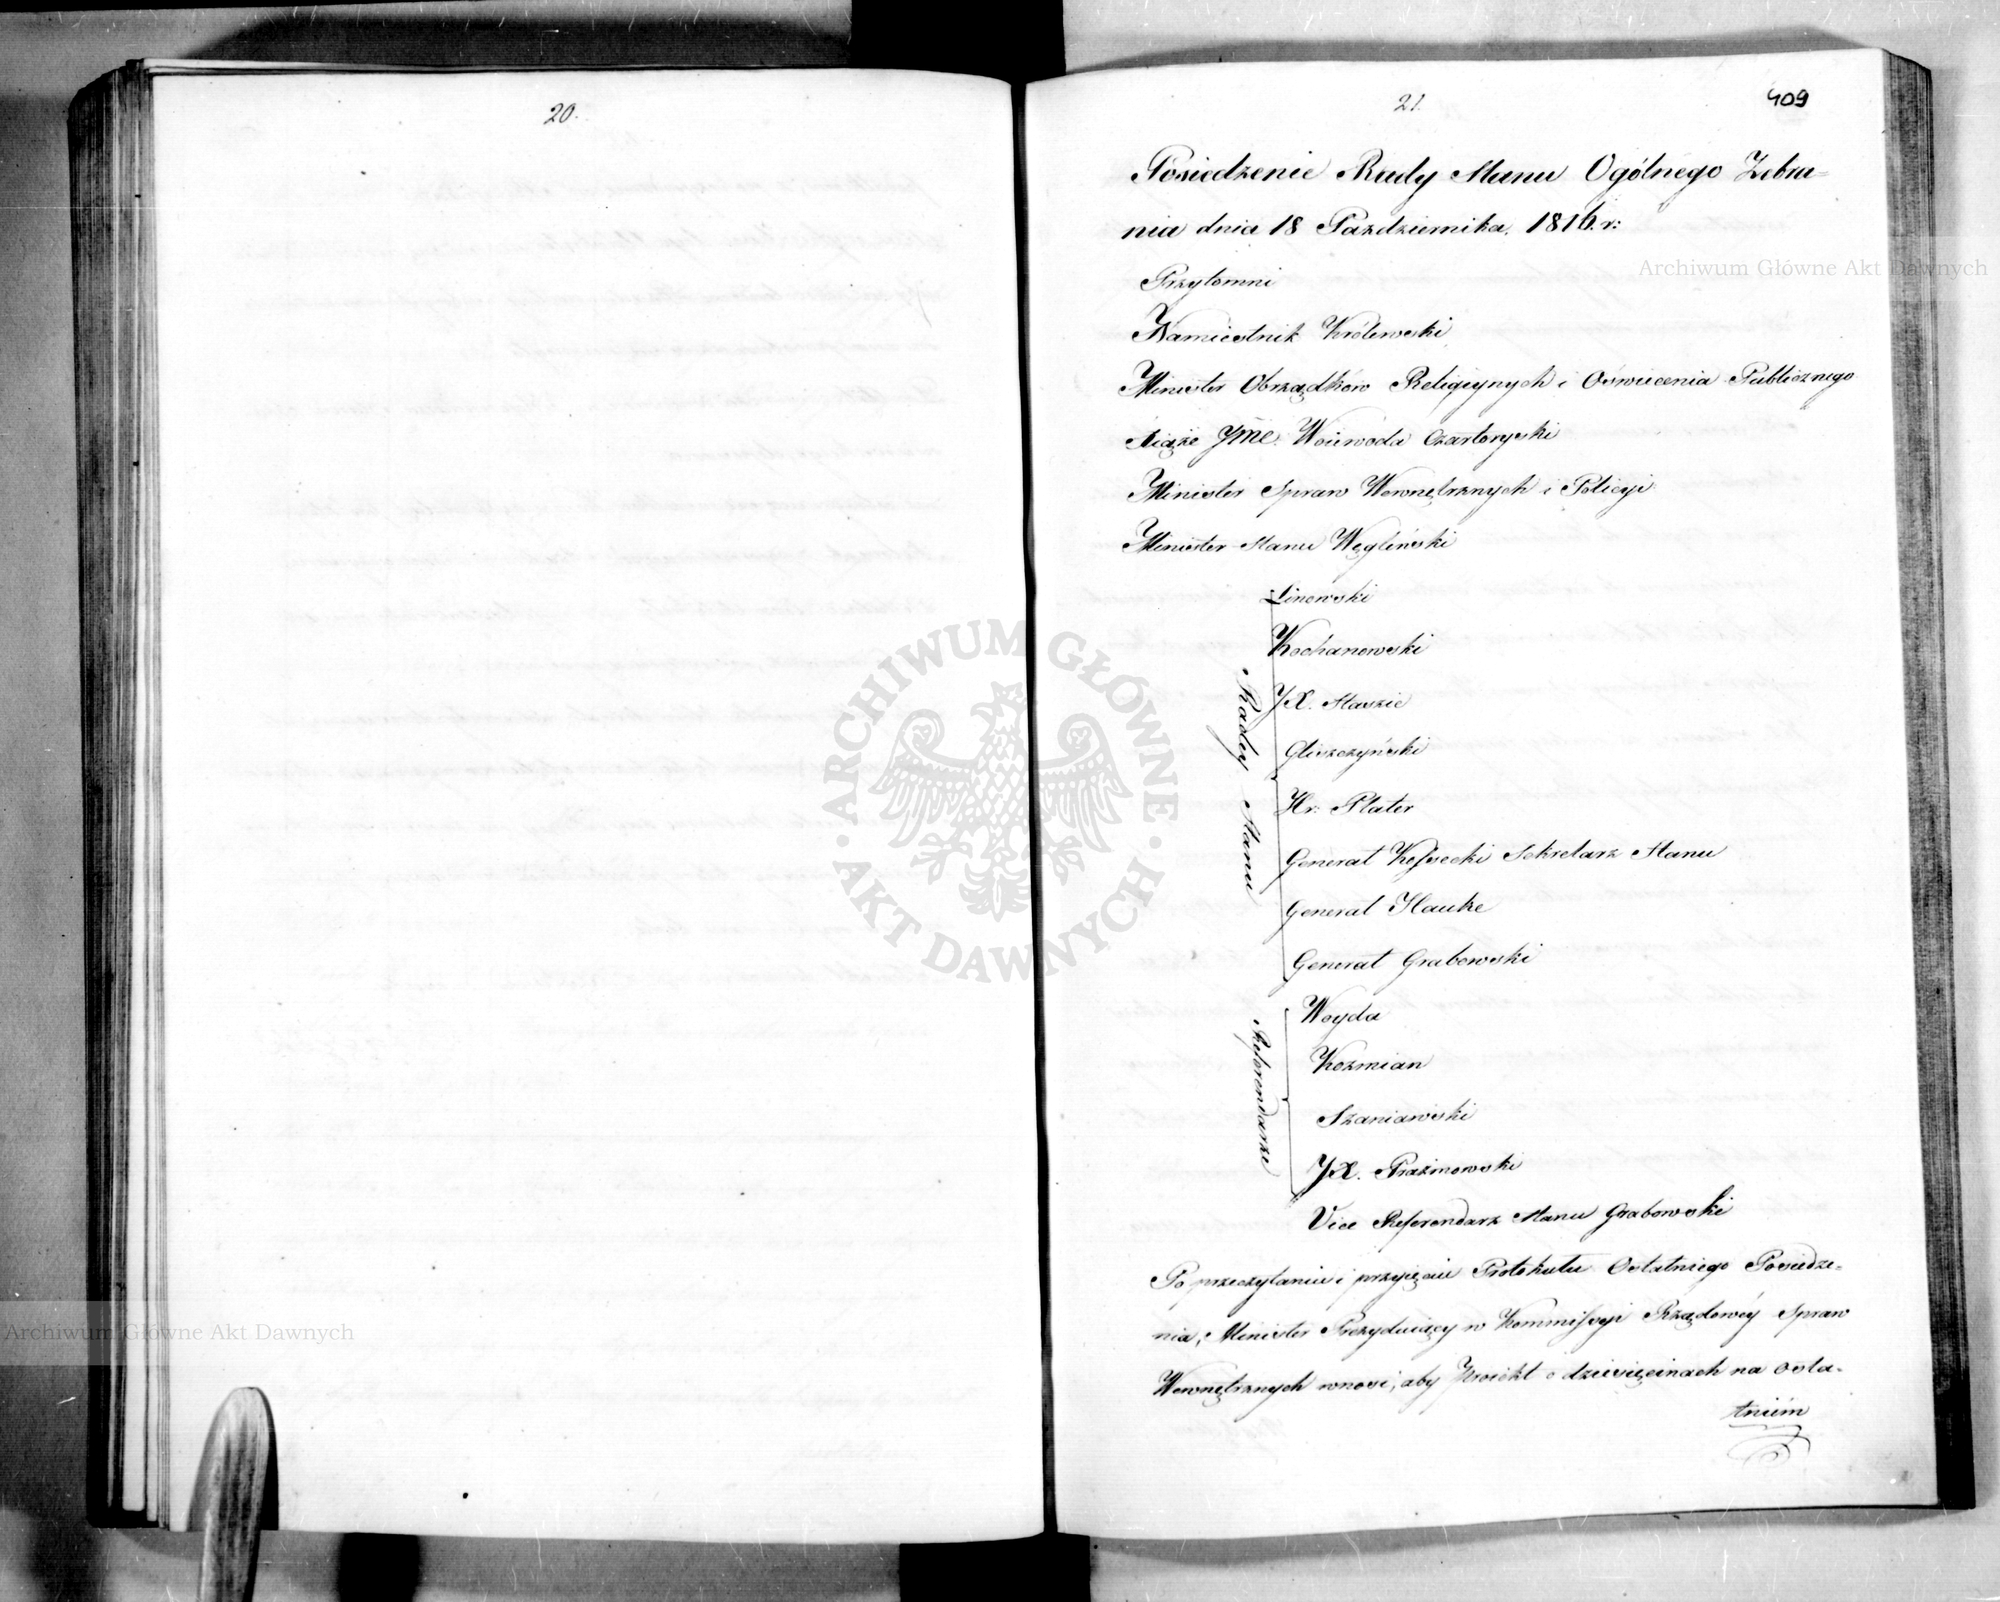 20.
21.
409
Posiedzenie Rady Stanu Ogólnego Zebra=
nia dnia 18 Października 1816.r:
Przytomni
Namiestnik Królewski
Minister Obrządków Religiynych i Oświecenia Publicznego
Xiąże Jmć. Woiewoda Czartoryski
Minister Spraw Wewnętrznych i Policyi
Minister Stanu Węgleński
Radcy Stanu
Linowski
Kochanowski
JX. Staszic
Gliszczyński
Hr: Plater
Generał Kossecki Sekretarz Stanu
Generał Hauke
Generał Grabowski
Referendarze
Woyda
Koźmian
Szaniawski
JX. Prażmowski
Vice Referendarz Stanu Grabowski
Po przeczytaniu i przyięciu Protokułu Ostatniego Posiedze=
nia, Minister Prezyduiący w Kommissyi Rządowéy Spraw
Wewnętrznych wnosi, aby Proiekt o dziesięcinach na osta=
tniém
Archiwum Główne Akt Dawnych
ARCHIWUM GŁÓWNE · AKT DAWNYCH ·
Archiwum Główne Akt Dawnych